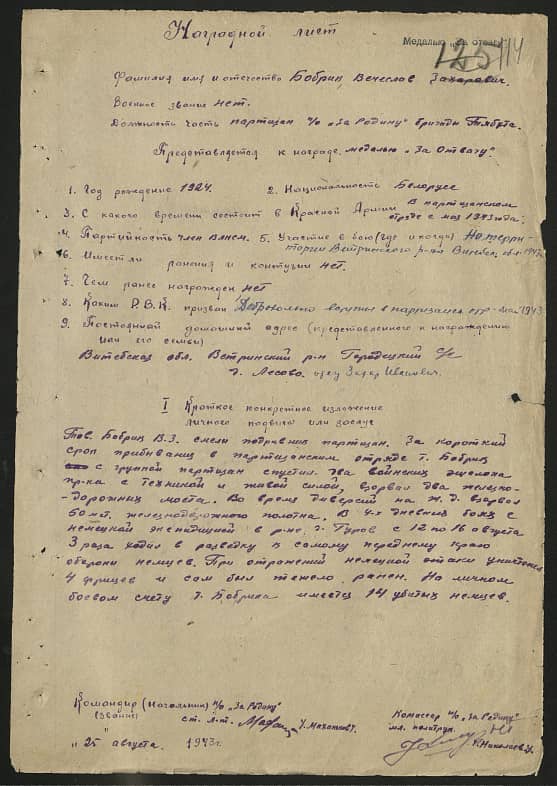 Наградной лист
Медалью „За отвагу"
125/14
Фамилия имя и отечество Бобрик Вечеслав Захаравич.
Военное звание нет.
Должность часть партизан п/о „За Родину" бригады
Представляется к награде медалью „За Отвагу"
1. Год рождение 1924. 2. Национальность Белорусс
3. С какого времени состоит в Красной Армии В партизанском
отряде с мая 1943 года.
4. Партийность член ВЛКСМ. 5. Участие в бою (где и когда) На терри-
тории Ветринского р-на
6. Имеет ли ранения и контузии нет.
7. Чем ранее награжден нет
8. Каким Р.В.К. призван Добровольно в партизанск. отр - май 1943
9. Постоянной домашний адрес (представленного к награждению
или его семьи)
Витебская обл. Ветринский р-н Городецкий С/с
д. Лесова. отец Захар Иванович.
I Краткое конкретное изложение
личного подвига или заслуг
Тов. Бобрик В.З. смелый партизан. За короткий
срок прибывания в партизанском отряде т. Бобрик
с группой партизан спустил два воинских эшелона
пр-ка с техникой и живой силой, взорвал два железно-
-дорожных моста. Во время диверсий на Ж.Д. взорвал
60 мт. железнодорожного полотна. В 4-х дневных боях с
немецкой экспедицией в р-не д. Гуров с 12 по 16 августа
3 раза ходил в разведку к самому переднему краю
обороны немцев. При отражений немецкой атаки уничтожил
4 фрицев и сам был тяжело ранен. На личном
боевом счету т. Бобрика имеется 14 убитых немцев.
Командир (Начальник) п/о „За Родину"
(Звание) ст. л-т.
Комассар п/о „За Родину"
мл. политрук
/Николаев/
„25" августа 1943 г.